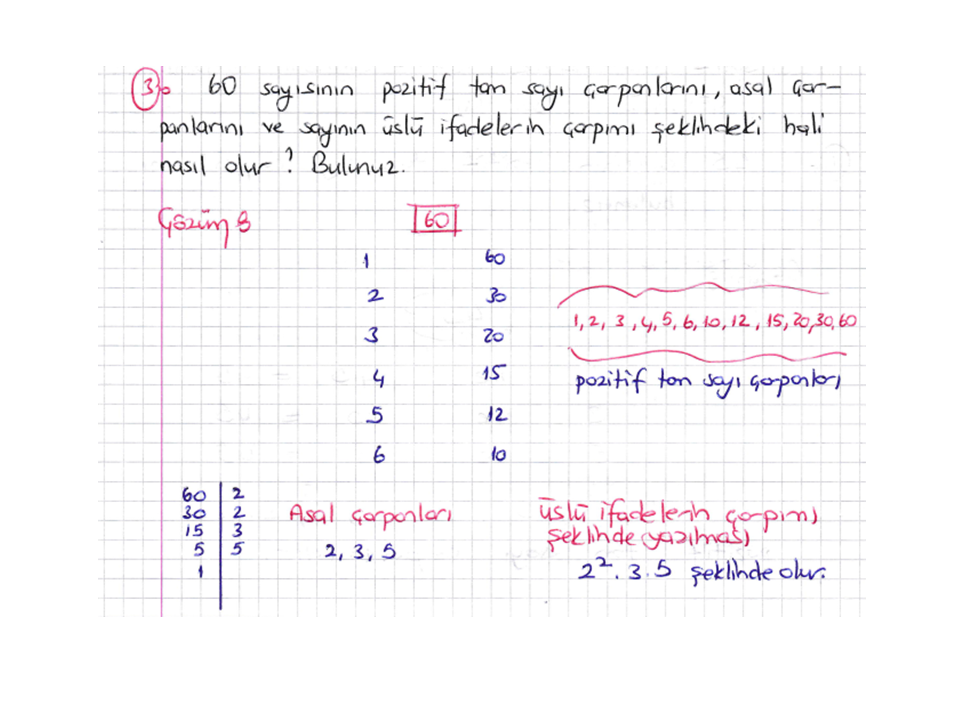 3) 60 sayısının pozitif tam sayı çarpanlarını, asal çar-
panlarını ve sayının üslü ifadelerin çarpımı şeklindeki hali
nasıl olur? Bulunuz.
Çözüm:
60
1 60
2 30
3 20
4 15
5 12
6 10
1, 2, 3, 4, 5, 6, 10, 12, 15, 20, 30, 60
pozitif tam sayı çarpanları
60 | 2
30 | 2
15 | 3
5 | 5
1
Asal çarpanları
2, 3, 5
üslü ifadelerin çarpımı
şeklinde yazılması
2². 3.5 şeklinde olur.